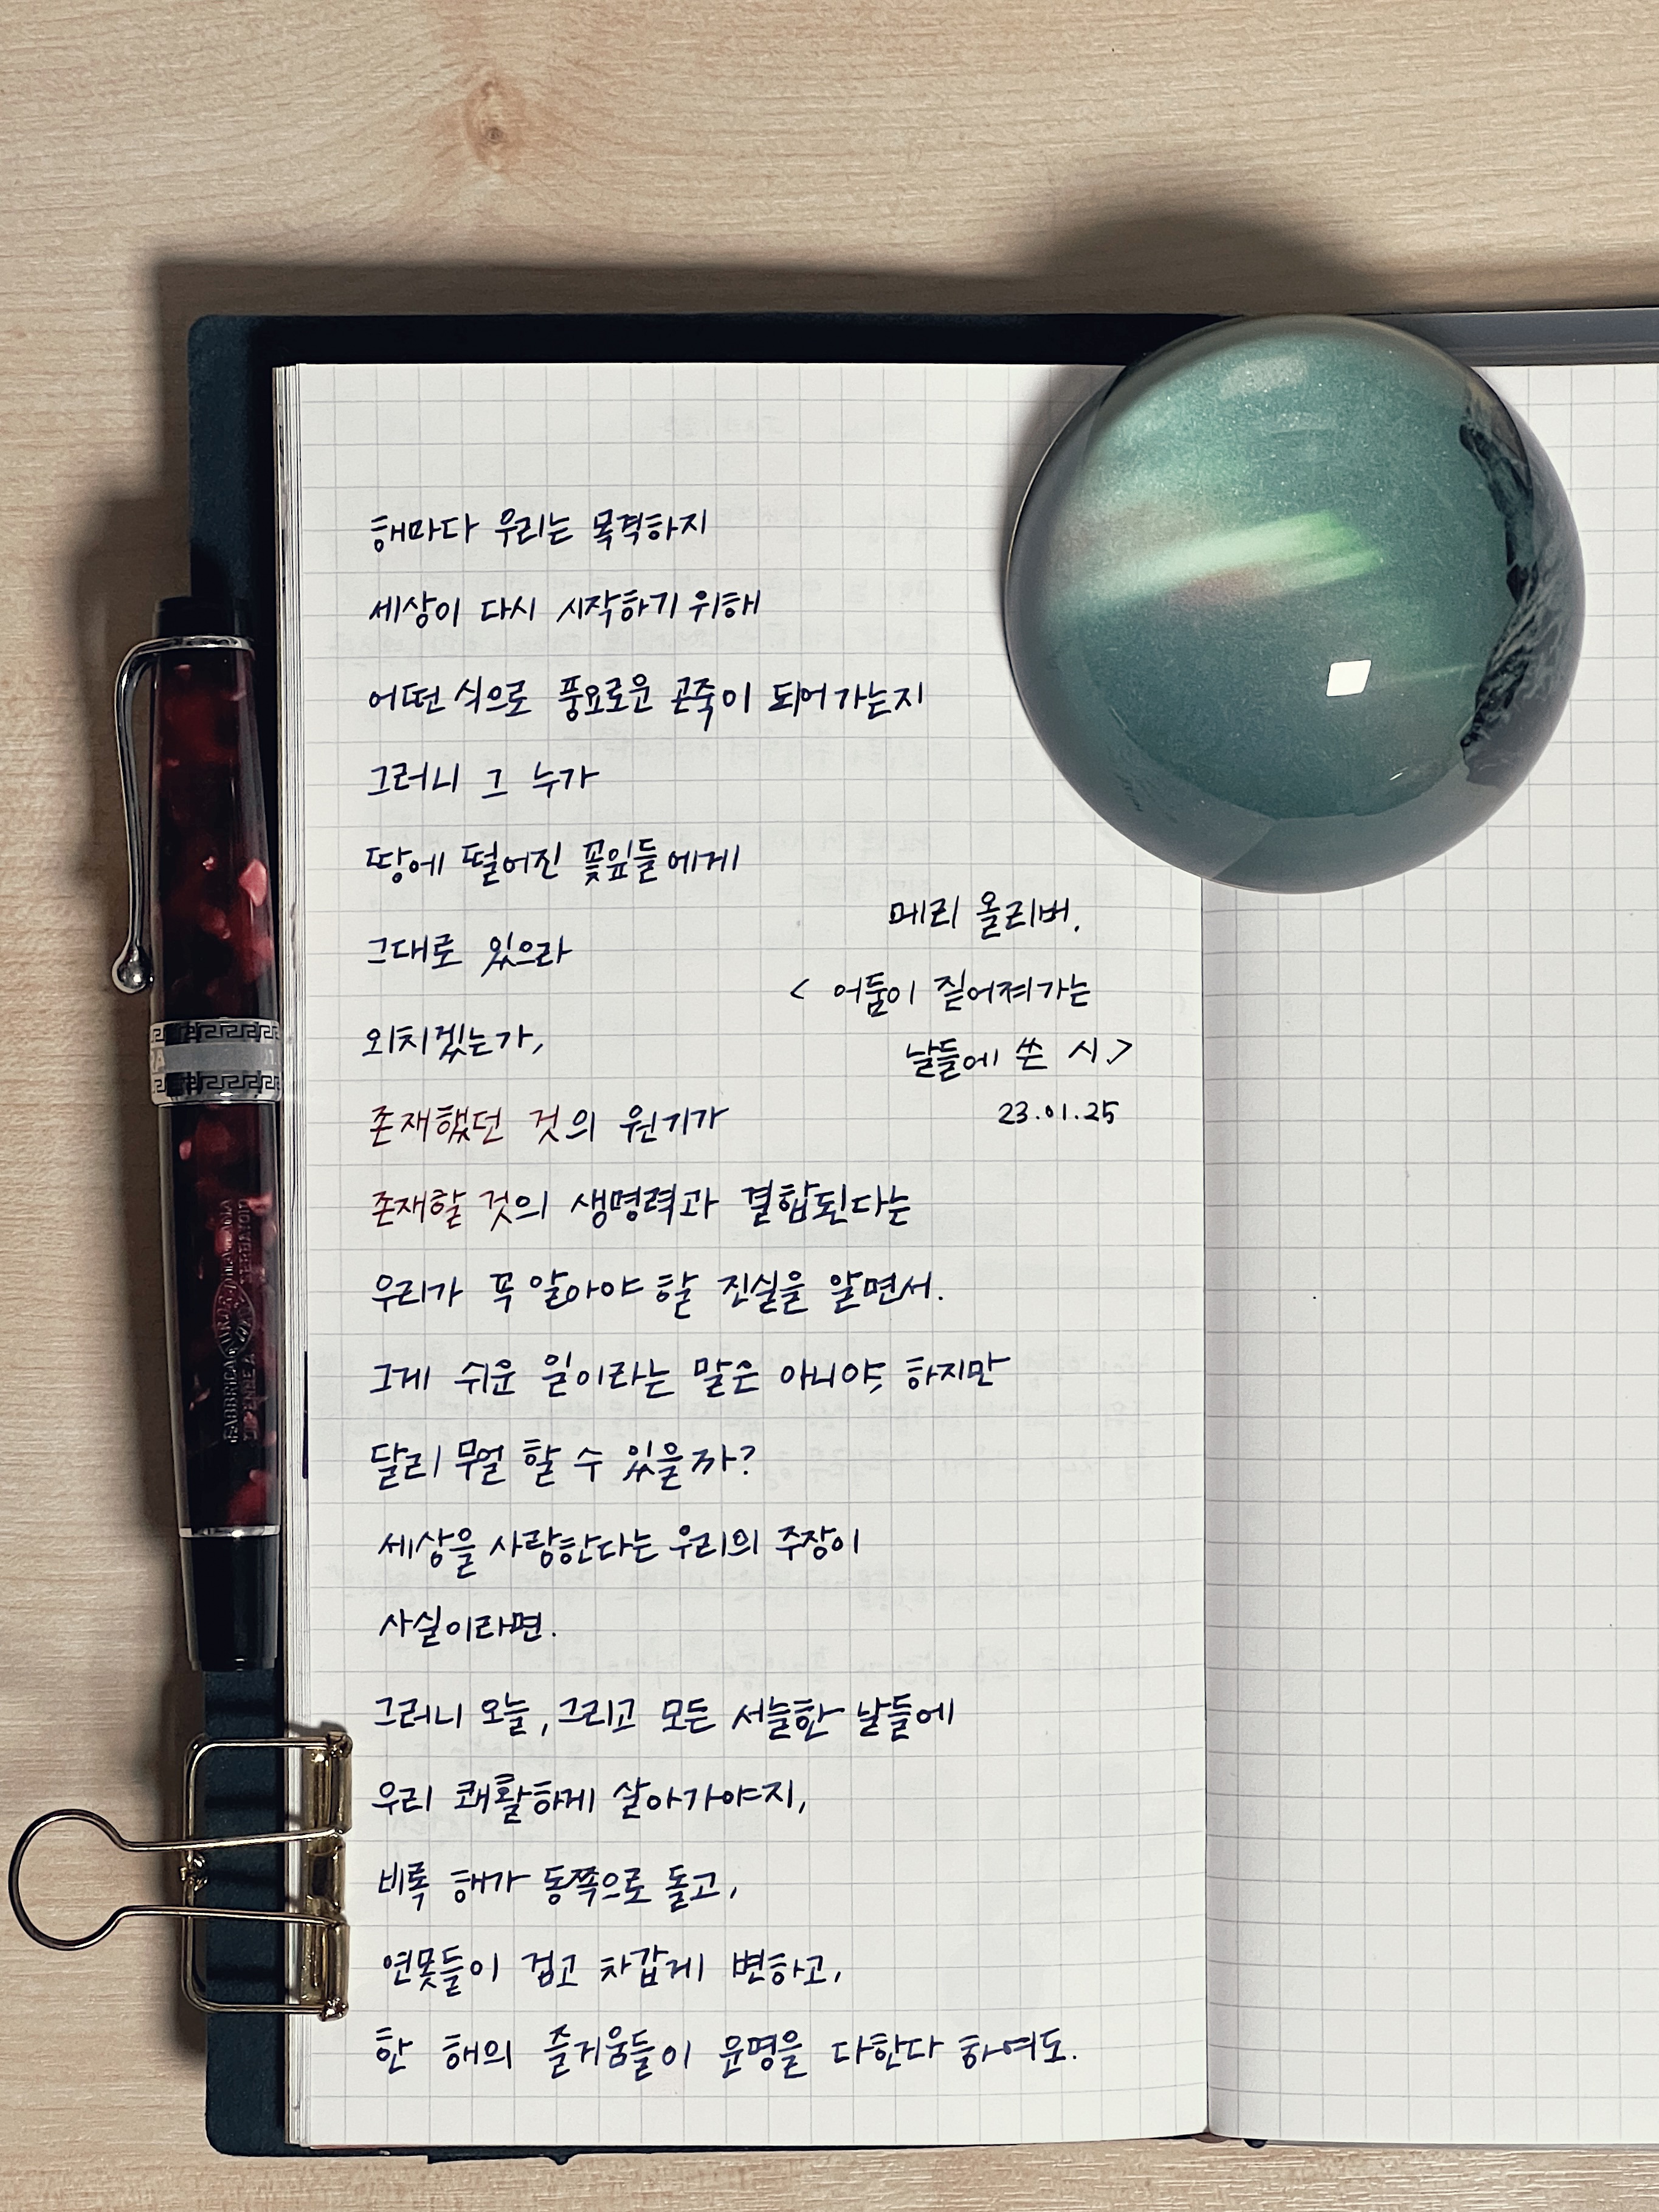 해마다 우리는 목격하지
세상이 다시 시작하기 위해
어떤 식으로 풍요로운 곤죽이 되어가는지
그러니 그 누가
땅에 떨어진 꽃잎들에게
그대로 있으라
외치겠는가,
존재했던 것의 원기가
존재할 것의 생명력과 결합된다는
우리가 꼭 알아야 할 진실을 알면서.
그게 쉬운 일이라는 말은 아니야, 하지만
달리 뭘 할 수 있을까?
세상을 사랑한다는 우리의 주장이
사실이라면.
그러니 오늘, 그리고 모든 서늘한 날들에
우리 쾌활하게 살아가야지,
비록 해가 동쪽으로 돌고,
연못들이 검고 차갑게 변하고,
한 해의 즐거움들이 운명을 다한다 하여도.
메리 올리버,
< 어둠이 짙어져가는
날들에 쓴 시.>
23.01.25